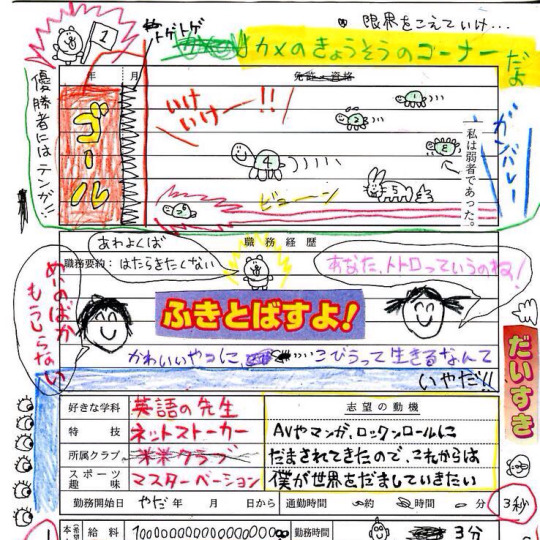 限界をこえていけ…
トゲトゲ
カメのきょうそうのコーナーだよ
年 月
免許・資格
優勝者にはテンガ!!
ゴール
いけ
いけー!!
1
2
3
4
5
私は弱者であった。
ガンバレー
ビューン
職務経歴
あわよくば
職務要約：はたらきたくない
あなた、トトロっていうのね！
めいのばか
もうしらない
ふきとばすよ！
かわいいやつに、こびうって生きるなんて
いやだ!!
だいすき
好きな学科
英語の先生
特技
ネットストーカー
所属クラブ
スポーツ
趣味
マスターベーション
志望の動機
AVやマンガ、ロックンロールに
だまされてきたので、これからは
僕が世界をだましていきたい
勤務開始日 やだ 年 月 日から
通勤時間 約 時間 分
3秒
給料
勤務時間
3分